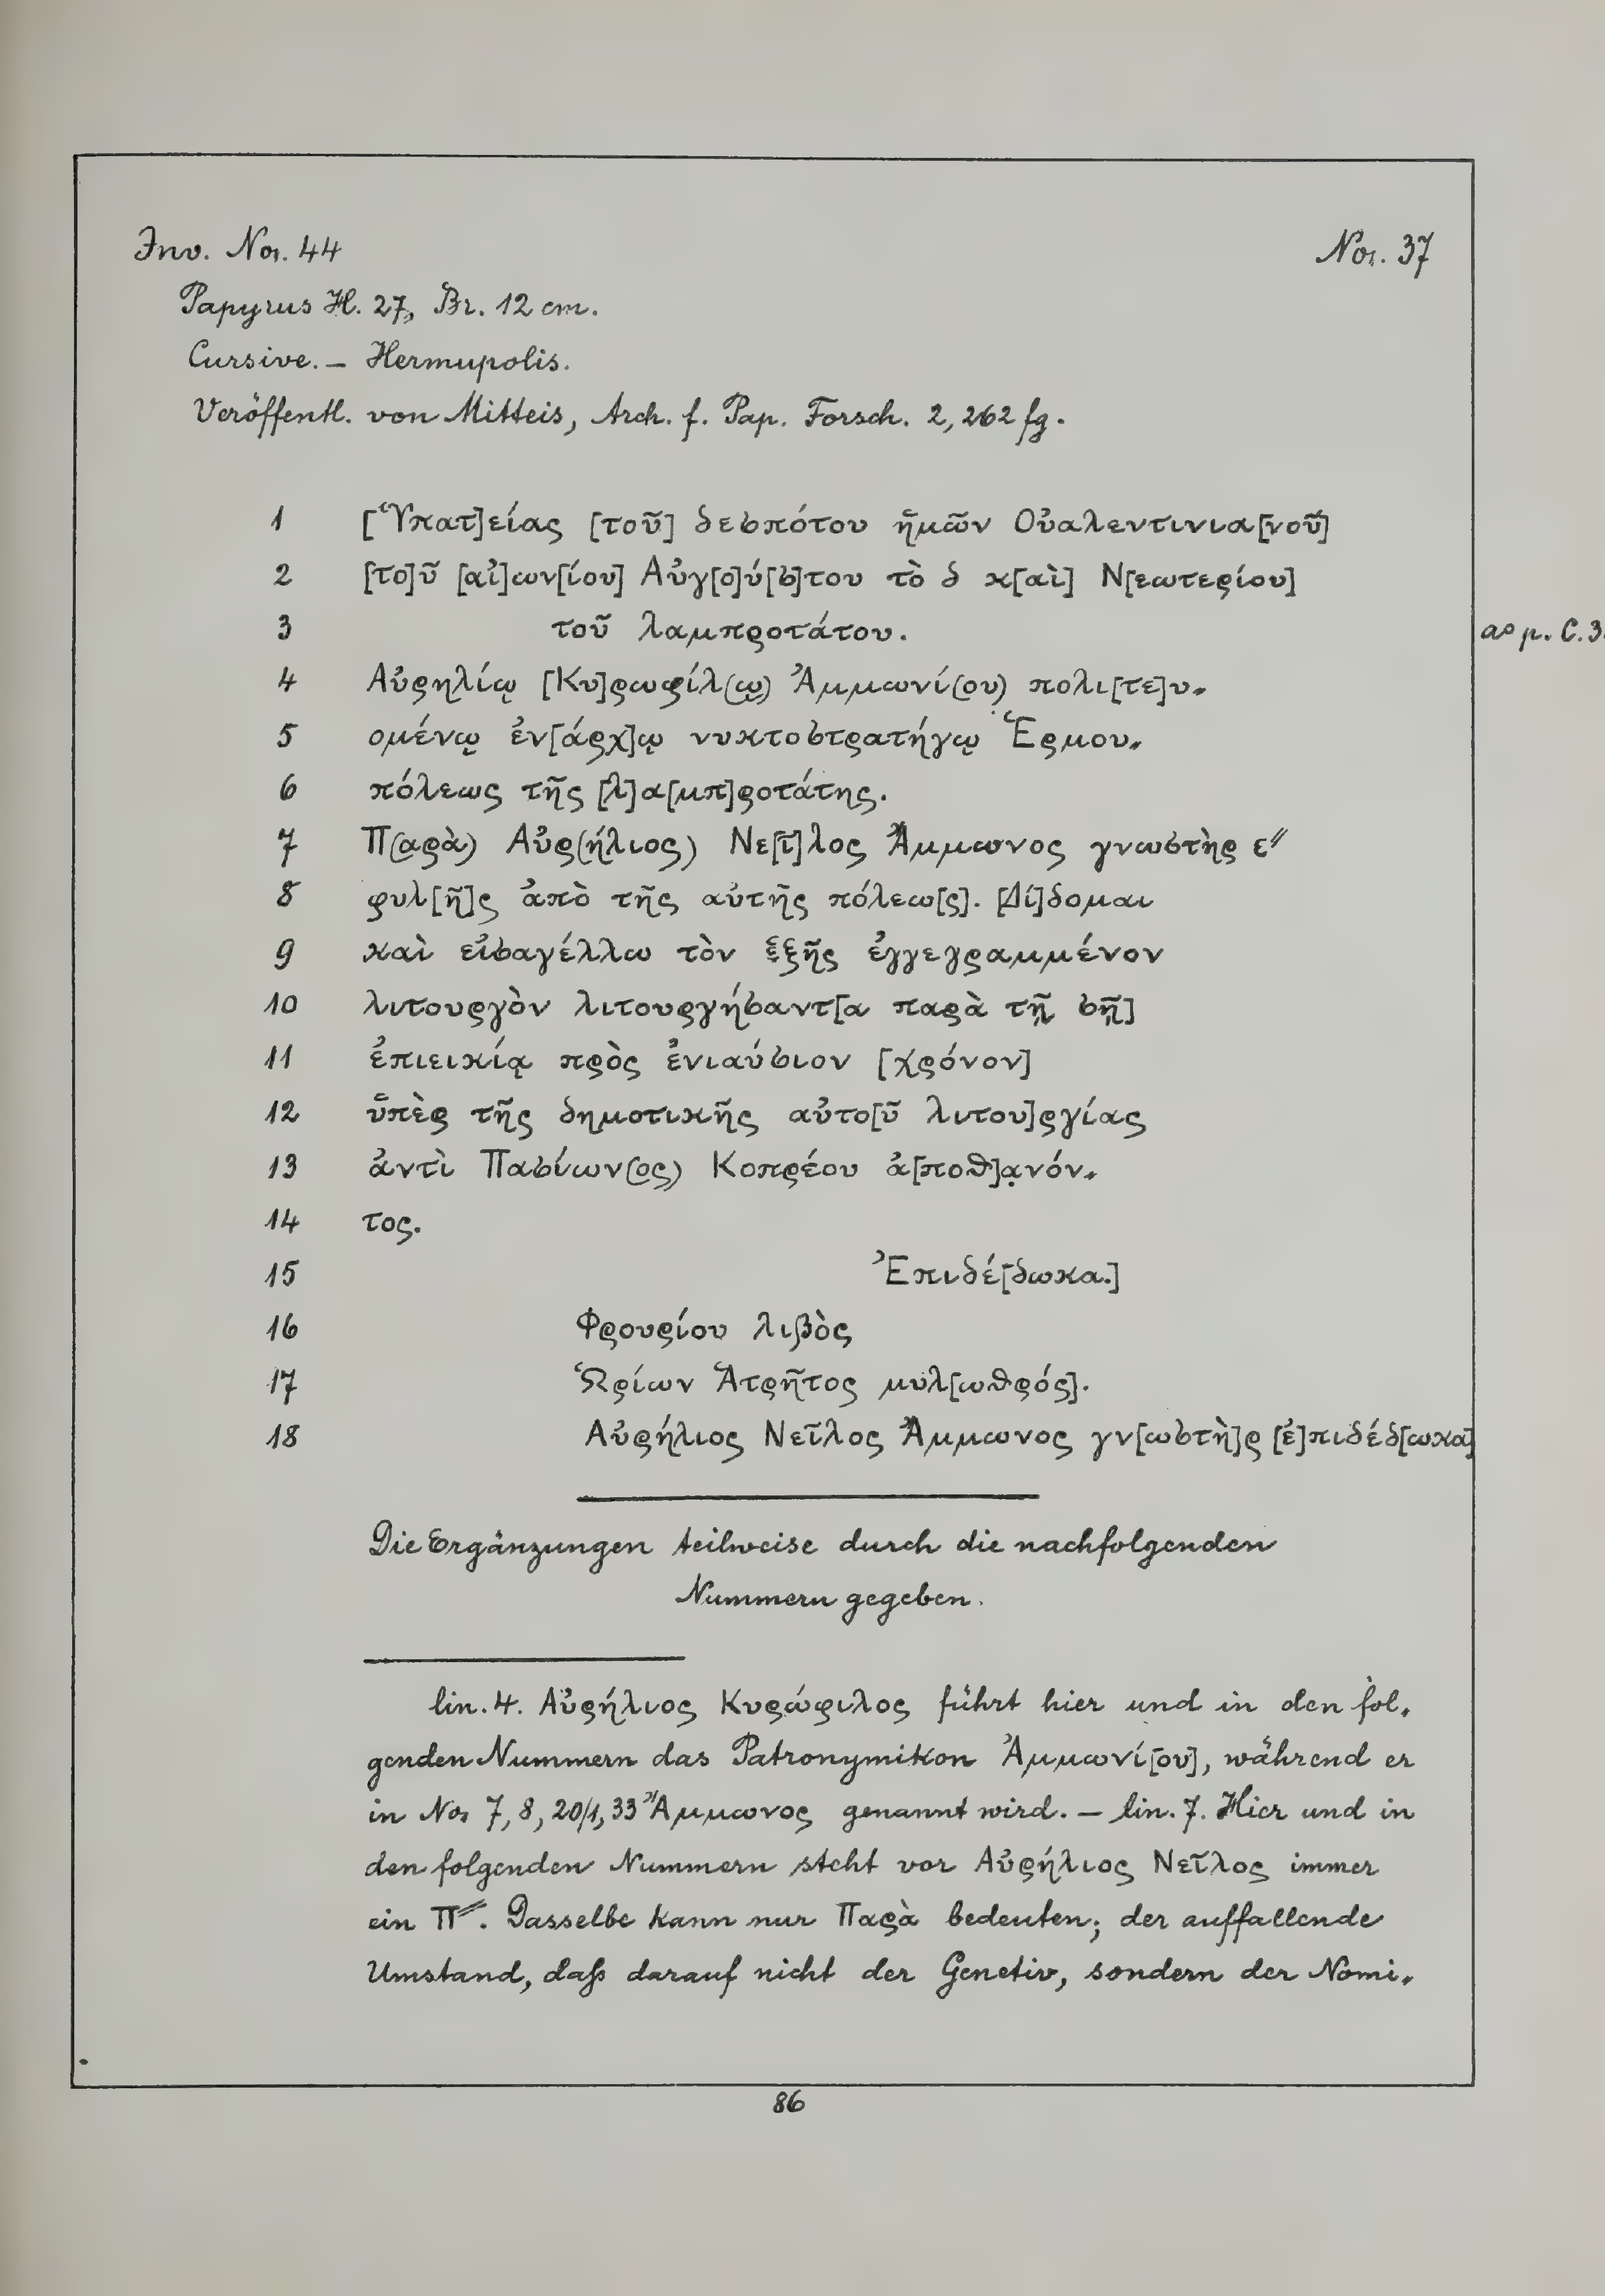 Inv. No. 44
No. 37
Papyrus H. 27, Br. 12 cm.
Cursive. – Hermupolis.
Veröffentl. von Mitteis, Arch. f. Pap. Forsch. 2, 262 fg.
1 [Ὑπατ]είας [τοῦ] δεσπότου ἡμῶν Οὐαλεντινια[νοῦ]
2 [το]ῦ [αἰ]ων[ίου] Αὐγ[ο]ύ[σ]του τὸ δ κ[αὶ] Ν[εωτερίου]
3 τοῦ λαμπροτάτου.
a° p. C. 3
4 Αὐρηλίῳ [Κυ]ρωφίλ(ῳ) Ἀμμωνί(ου) πολι[τε]υ-
5 ομένῳ ἐν[άρχ]ῳ νυκτοστρατήγῳ Ἑρμου-
6 πόλεως τῆς [λ]α[μπ]ροτάτης.
7 Π(αρὰ) Αὐρ(ήλιος) Νε[ῖ]λος Ἄμμωνος γνωστὴρ ε〃
8 φυλ[ῆ]ς ἀπὸ τῆς αὐτῆς πόλεω[ς]. [Δί]δομαι
9 καὶ εἰσαγέλλω τὸν ἑξῆς ἐγγεγραμμένον
10 λιτουργὸν λιτουργήσαντ[α παρὰ τῇ σῇ]
11 ἐπιεικίᾳ πρὸς ἐνιαύσιον [χρόνον]
12 ὑπὲρ τῆς δημοτικῆς αὐτο[ῦ λιτου]ργίας
13 ἀντὶ Πασίων(ος) Κοπρέου ἀ[ποθ]α̣νόν-
14 τος.
15 Ἐπιδέ[δωκα.]
16 Φρουρίου λιβὸς
17 Ὡρίων Ἁτρῆτος μυλ[ωθρός].
18 Αὐρήλιος Νεῖλος Ἄμμωνος γν[ωστὴ]ρ [ἐ]πιδέδ[ωκα]
Die Ergänzungen teilweise durch die nachfolgenden
Nummern gegeben.
lin. 4. Αὐρήλιος Κυρώφιλος führt hier und in den fol-
genden Nummern das Patronymikon Ἀμμωνί[ου], während er
in No 7, 8, 20/1, 33 Ἄμμωνος genannt wird. – lin. 7. Hier und in
den folgenden Nummern steht vor Αὐρήλιος Νεῖλος immer
ein Π〃. Dasselbe kann nur Παρὰ bedeuten; der auffallende
Umstand, daß darauf nicht der Genetiv, sondern der Nomi-
86